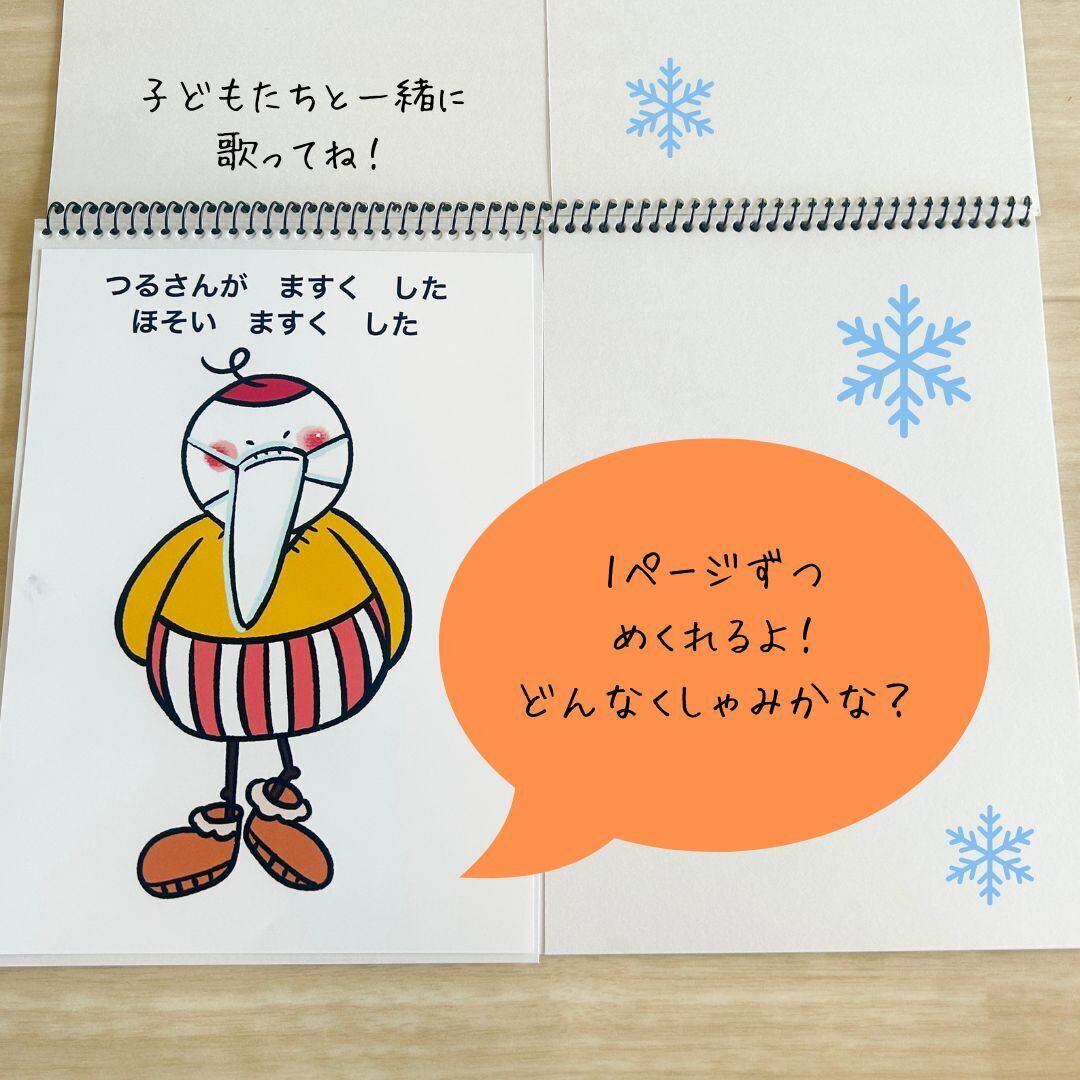 子どもたちと一緒に
歌ってね！
つるさんが　ますく　した
ほそい　ますく　した
1ページずつ
めくれるよ！
どんなくしゃみかな？